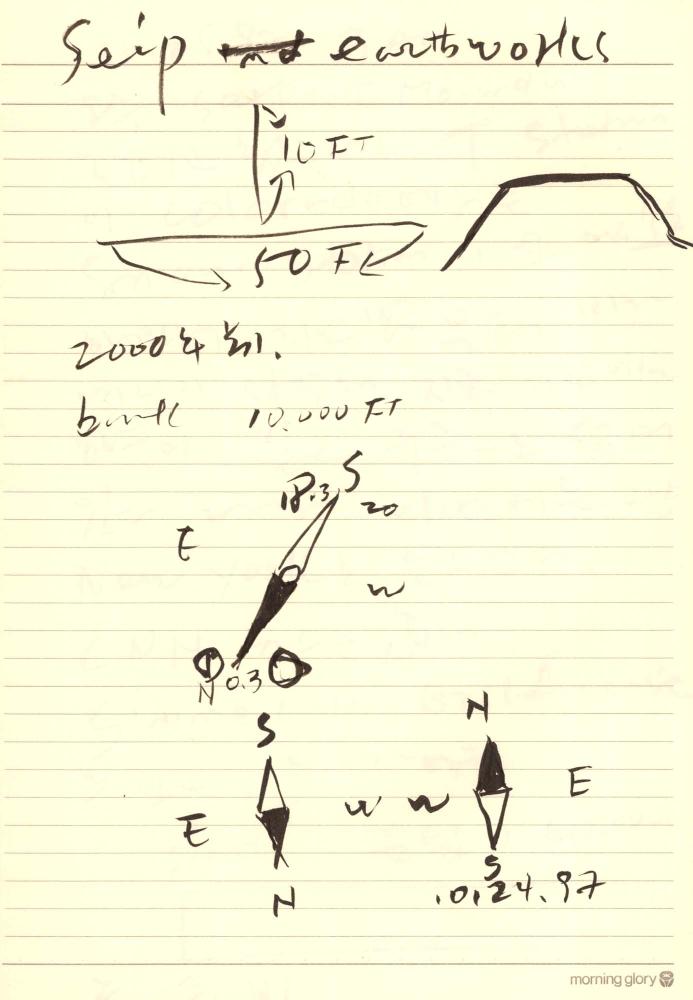 Seip earthworks
10 FT
50 FT
2000年前.
bank 10.000 FT
18.3 S
20
E
W
N 0.3
S
N
E W W E
S
N
10.24.97
morning glory